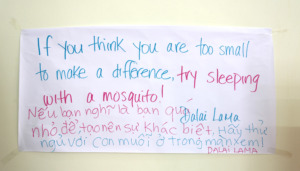 If you think you are too small
to make a difference, try sleeping
with a mosquito!
Dalai Lama
Nếu bạn nghĩ là bạn quá
nhỏ, để tạo nên sự khác biệt. Hãy thử
ngủ với con muỗi ở trong màn xem!
DALAI LAMA